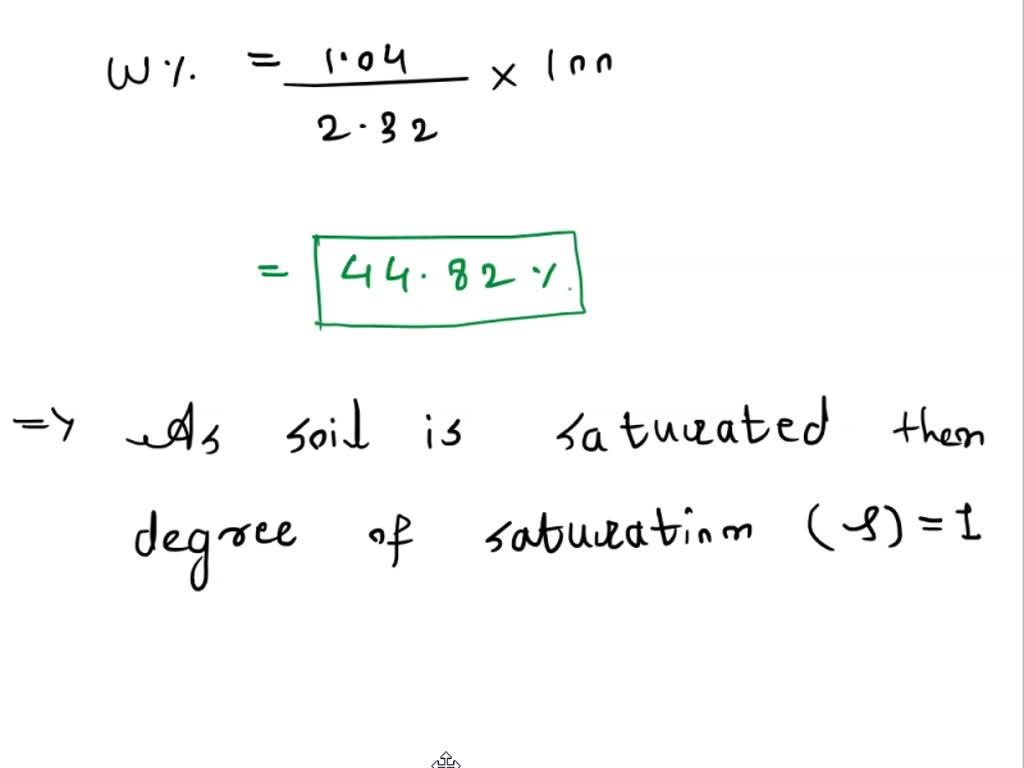 W% = 1.04 / 2.32 × 100
= 44.82%
=> As soil is saturated then
degree of saturation (S) = 1